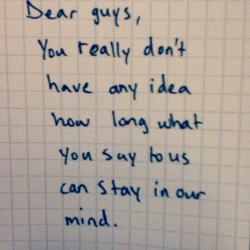 Dear guys,
You really don't
have any idea
how long what
you say to us
can stay in our
mind.